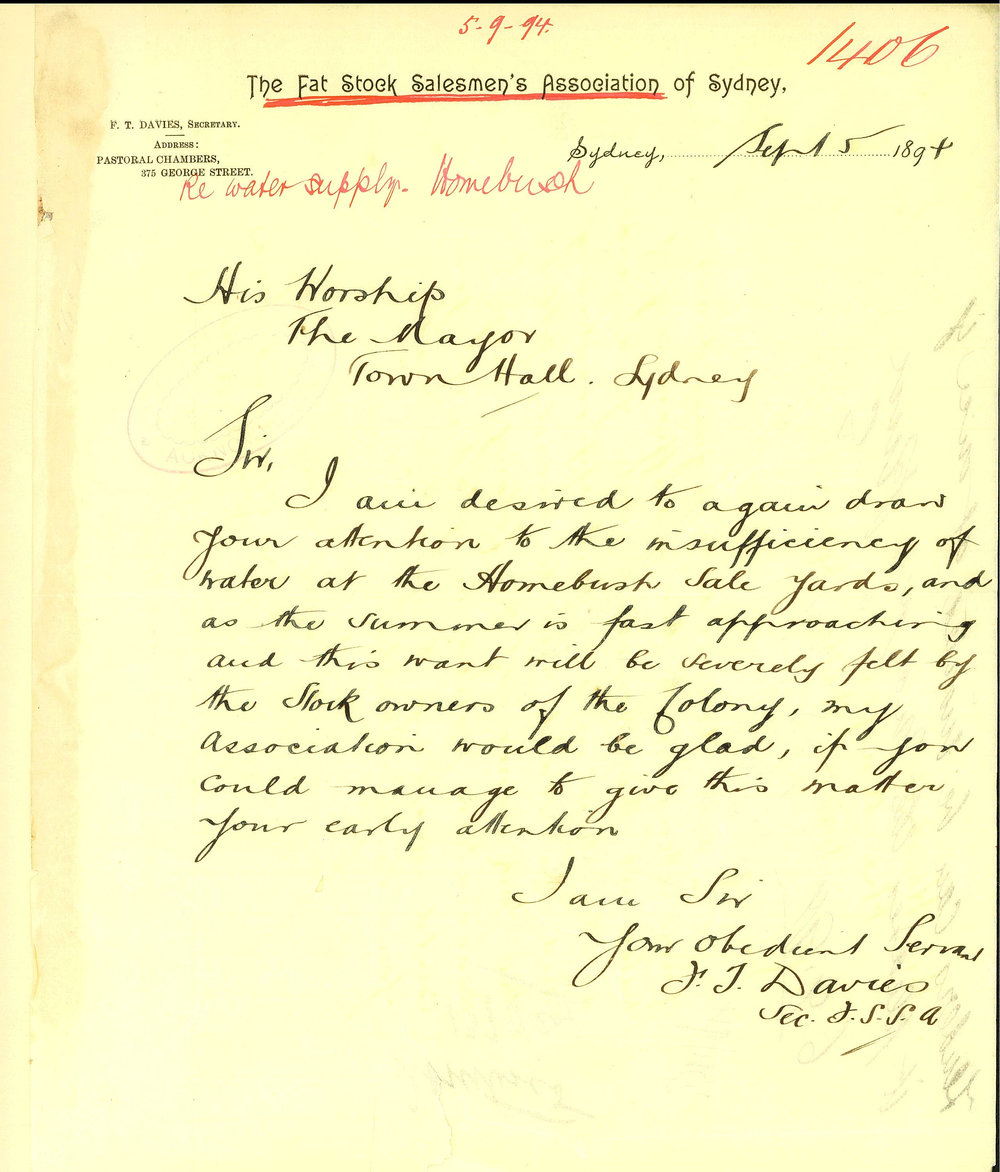 5-9-94.
1406
The Fat Stock Salesmen's Association of Sydney,
F. T. DAVIES, SECRETARY.
ADDRESS:
PASTORAL CHAMBERS,
375 GEORGE STREET.
Sydney, Sept 5 1894
Re water supply. Homebush
His Worship
The Mayor
Town Hall. Sydney
Sir,
I am desired to again draw
your attention to the insufficiency of
water at the Homebush Sale Yards, and
as the summer is fast approaching
and this want will be severely felt by
the Stock owners of the Colony, my
Association would be glad, if you
could manage to give this matter
your early attention
I am Sir
Your obedient Servant
F. T. Davies
Sec. F.S.S.A